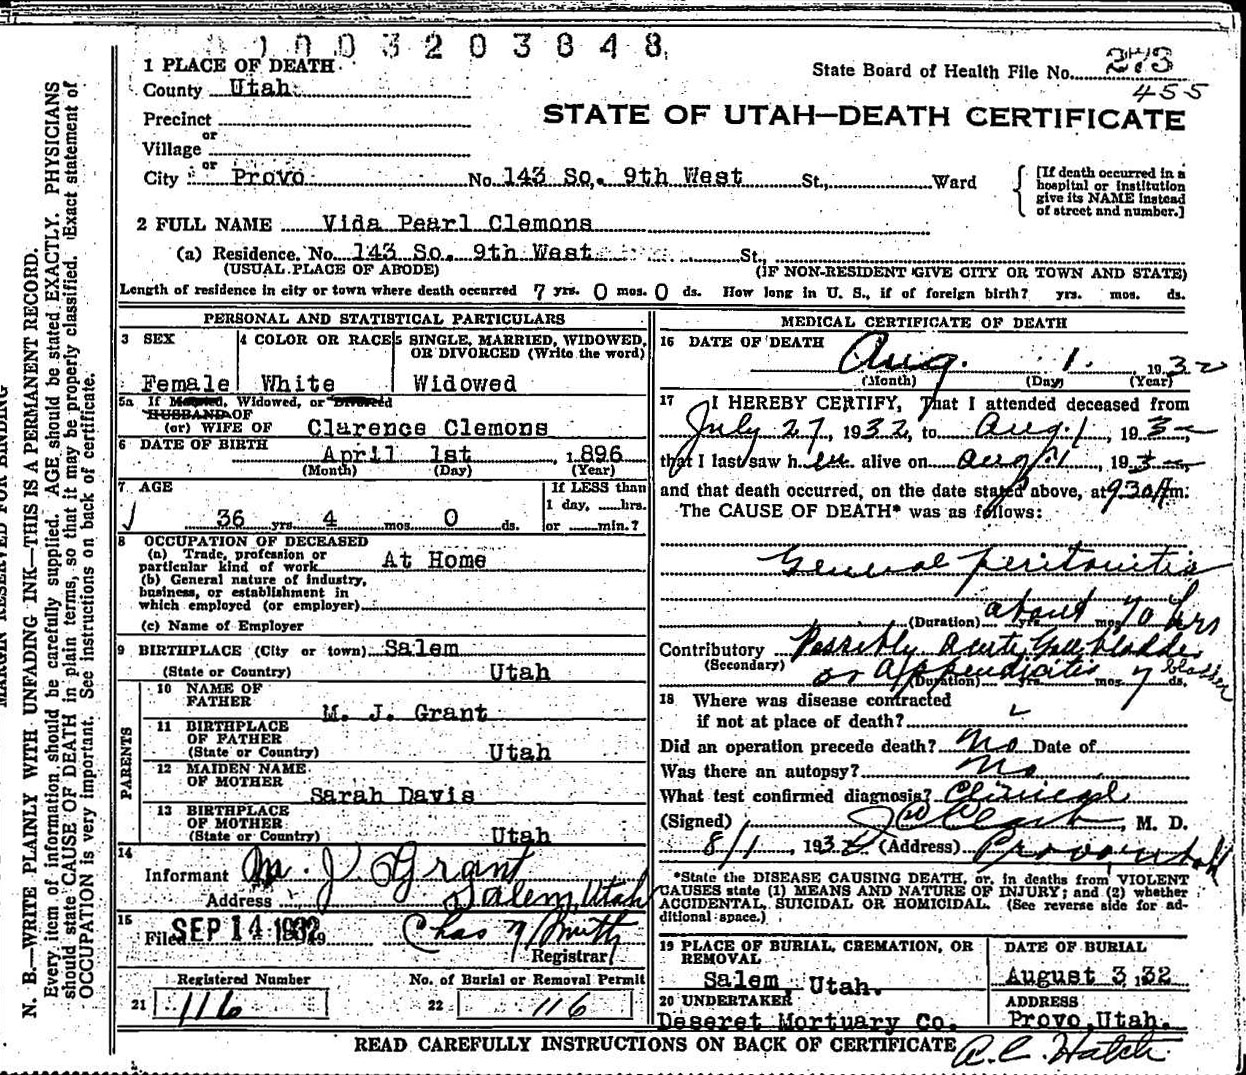 0 1 0 0 3 2 0 3 8 4 8
1 PLACE OF DEATH
State Board of Health File No. 273
455
County Utah
STATE OF UTAH—DEATH CERTIFICATE
Precinct
or
Village
or
City Provo No. 143 So. 9th West St., Ward
[If death occurred in a hospital or institution give its NAME instead of street and number.]
2 FULL NAME Vida Pearl Clemons
(a) Residence. No. 143 So. 9th West St.,
(USUAL PLACE OF ABODE) (IF NON-RESIDENT GIVE CITY OR TOWN AND STATE)
Length of residence in city or town where death occurred 7 yrs. 0 mos. 0 ds. How long in U. S., if of foreign birth? yrs. mos. ds.
PERSONAL AND STATISTICAL PARTICULARS
3 SEX
Female
4 COLOR OR RACE
White
5 SINGLE, MARRIED, WIDOWED, OR DIVORCED (Write the word)
Widowed
5a If Married, Widowed, or Divorced
HUSBAND OF
(or) WIFE OF Clarence Clemons
6 DATE OF BIRTH April 1st, 1896
(Month) (Day) (Year)
7 AGE
36 yrs. 4 mos. 0 ds.
If LESS than
1 day, hrs.
or min.?
8 OCCUPATION OF DECEASED
(a) Trade, profession or
particular kind of work At Home
(b) General nature of industry,
business, or establishment in
which employed (or employer)
(c) Name of Employer
9 BIRTHPLACE (City or town) Salem
(State or Country) Utah
PARENTS
10 NAME OF
FATHER M. J. Grant
11 BIRTHPLACE
OF FATHER
(State or Country) Utah
12 MAIDEN NAME
OF MOTHER Sarah Davis
13 BIRTHPLACE
OF MOTHER
(State or Country) Utah
14
Informant M. J. Grant
Address Salem, Utah
15
Filed SEP 14 1932 Chas N Smith
Registrar
Registered Number
21 116
No. of Burial or Removal Permit
22 116
MEDICAL CERTIFICATE OF DEATH
16 DATE OF DEATH
Aug. 1. 1932
(Month) (Day) (Year)
17 I HEREBY CERTIFY, That I attended deceased from
July 27, 1932, to Aug. 1, 193
that I last saw h er alive on Aug. 1, 193
and that death occurred, on the date stated above, at 930 A m.
The CAUSE OF DEATH* was as follows:
General peritonitis
about 70 hrs
(Duration) yrs. mos.
Contributory Possibly Acute Gall bladder
(Secondary) or appendicitis 7 bladder
(Duration) yrs. mos. ds.
18 Where was disease contracted
if not at place of death?
Did an operation precede death? No Date of
Was there an autopsy? No
What test confirmed diagnosis? Clinical
(Signed) Clark, M. D.
8/1, 1932 (Address) Provo, Utah
*State the DISEASE CAUSING DEATH, or, in deaths from VIOLENT
CAUSES state (1) MEANS AND NATURE OF INJURY; and (2) whether
ACCIDENTAL, SUICIDAL OR HOMICIDAL. (See reverse side for ad-
ditional space.)
19 PLACE OF BURIAL, CREMATION, OR
REMOVAL
Salem, Utah.
DATE OF BURIAL
August 3, 32
20 UNDERTAKER
Deseret Mortuary Co.
ADDRESS
Provo, Utah.
READ CAREFULLY INSTRUCTIONS ON BACK OF CERTIFICATE A. C. Hatch
MARGIN RESERVED FOR BINDING
N. B.—WRITE PLAINLY WITH UNFADING INK—THIS IS A PERMANENT RECORD.
Every item of information should be carefully supplied. AGE should be stated EXACTLY. PHYSICIANS
should state CAUSE OF DEATH in plain terms, so that it may be properly classified. Exact statement of
OCCUPATION is very important. See instructions on back of certificate.